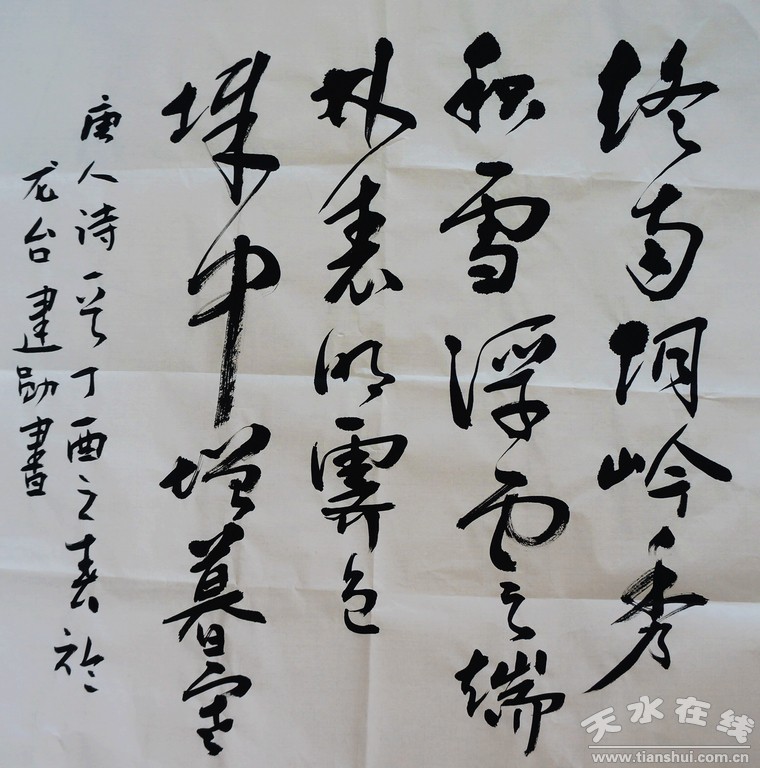 终南阴岭秀
积雪浮雲端
林表明霁色
城中增暮寒
唐人诗一首丁酉之春於
龙台建勋書
天水在线
www.tianshui.com.cn